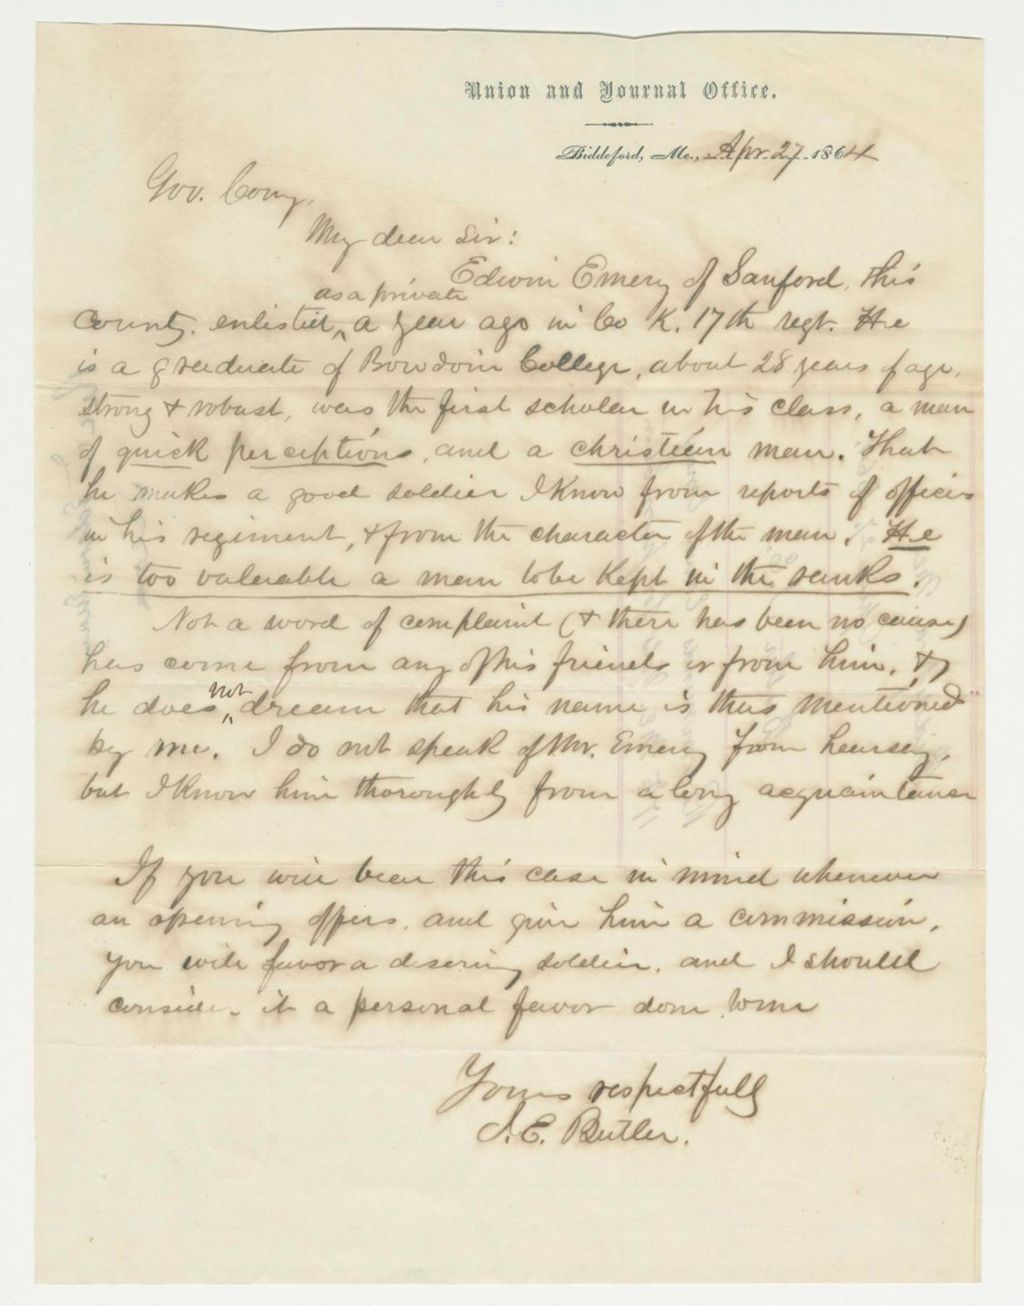 Union and Journal Office.
Biddeford, Me., Apr. 27 1864
Gov. Cony,
My dear Sir:
Edwin Emery of Sanford, this
as a private
County, enlisted, a year ago in Co K. 17th regt. He
is a graduate of Bowdoin College, about 28 years of age,
strong & robust, was the first scholar in his class, a man
of quick perceptions, and a christian man. That
he makes a good soldier I know from reports of officers
in his regiment, & from the character of the man. He
is too valuable a man to be kept in the ranks.
Not a word of complaint (& there has been no cause)
has come from any of his friends or from him, &
not
he does dream that his name is thus mentioned
by me. I do not speak of Mr. Emery from hearsay,
but I know him thoroughly from a long acquaintance
If you will bear this case in mind whenever
an opening offers, and give him a commission,
you will favor a deserving soldier, and I should
consider it a personal favor done to me
Yours respectfully
J. E. Butler.